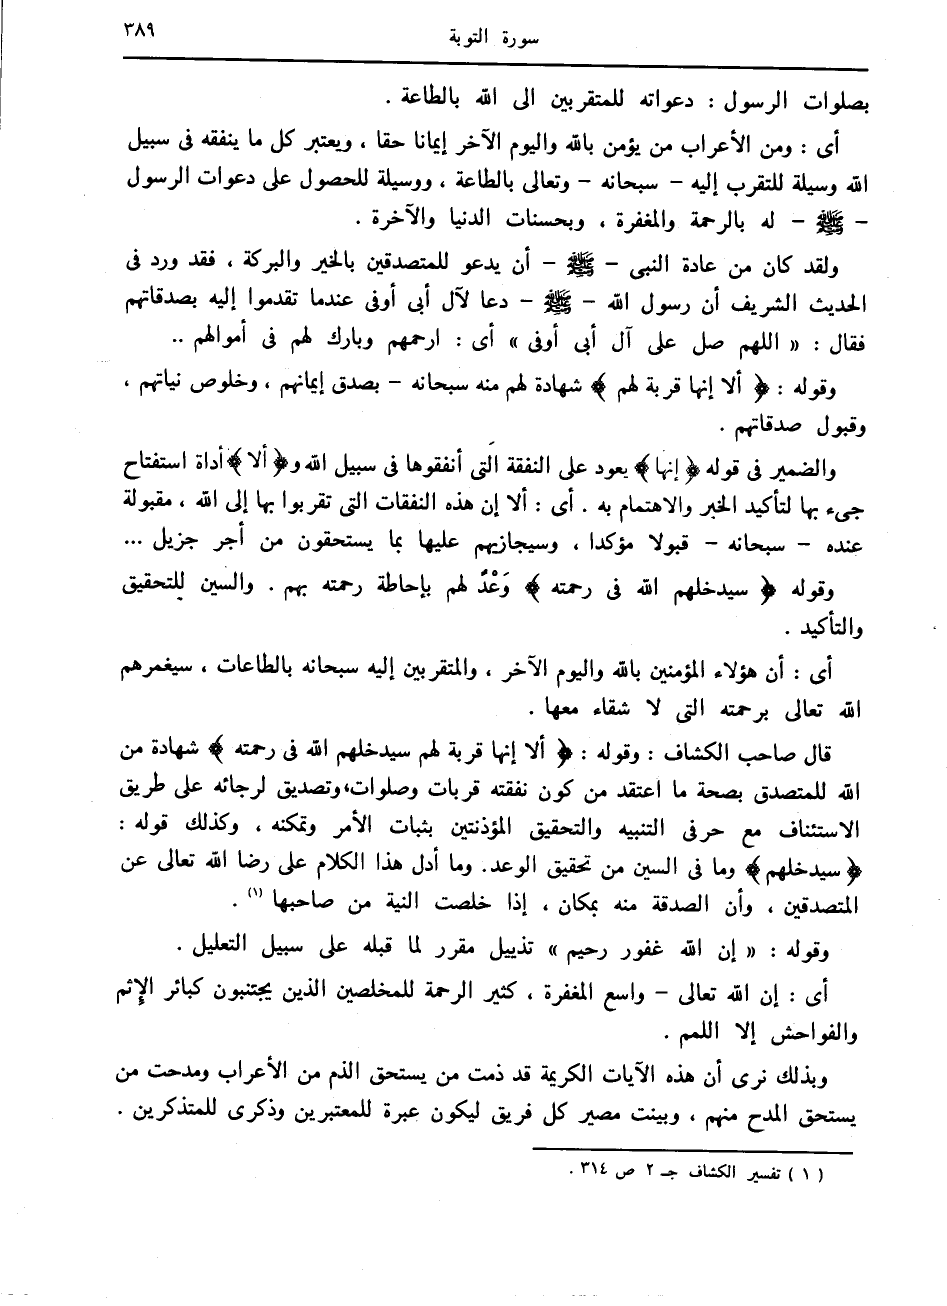 سورة التوبة ٣٨٩
بصلوات الرسول : دعواته للمتقربين الى الله بالطاعة .
أى : ومن الأعراب من يؤمن بالله واليوم الآخر إيمانا حقا ، ويعتبر كل ما ينفقه فى سبيل
الله وسيلة للتقرب إليه – سبحانه – وتعالى بالطاعة ، ووسيلة للحصول على دعوات الرسول
– ﷺ – له بالرحمة والمغفرة ، وبحسنات الدنيا والآخرة .
ولقد كان من عادة النبى – ﷺ – أن يدعو للمتصدقين بالخير والبركة ، فقد ورد فى
الحديث الشريف أن رسول الله – ﷺ – دعا لآل أبى أوفى عندما تقدموا إليه بصدقاتهم
فقال : « اللهم صل على آل أبى أوفى » أى : ارحمهم وبارك لهم فى أموالهم ..
وقوله : ﴿ ألا إنها قربة لهم ﴾ شهادة لهم منه سبحانه – بصدق إيمانهم ، وخلوص نياتهم ،
وقبول صدقاتهم .
والضمير فى قوله ﴿ إنها ﴾ يعود على النفقة التى أنفقوها فى سبيل الله و﴿ ألا ﴾ أداة استفتاح
جىء بها لتأكيد الخبر والاهتمام به . أى : ألا إن هذه النفقات التى تقربوا بها إلى الله ، مقبولة
عنده – سبحانه – قبولا مؤكدا ، وسيجازيهم عليها بما يستحقون من أجر جزيل ...
وقوله ﴿ سيدخلهم الله فى رحمته ﴾ وَعْدٌ لهم بإحاطة رحمته بهم . والسين للتحقيق
والتأكيد .
أى : أن هؤلاء المؤمنين بالله واليوم الآخر ، والمتقربين إليه سبحانه بالطاعات ، سيغمرهم
الله تعالى برحمته التى لا شقاء معها .
قال صاحب الكشاف : وقوله : ﴿ ألا إنها قربة لهم سيدخلهم الله فى رحمته ﴾ شهادة من
الله للمتصدق بصحة ما اعتقد من كون نفقته قربات وصلوات، وتصديق لرجائه على طريق
الاستئناف مع حرفى التنبيه والتحقيق المؤذنتين بثبات الأمر وتمكنه ، وكذلك قوله :
﴿ سيدخلهم ﴾ وما فى السين من تحقيق الوعد. وما أدل هذا الكلام على رضا الله تعالى عن
المتصدقين ، وأن الصدقة منه بمكان ، إذا خلصت النية من صاحبها (١) .
وقوله : « إن الله غفور رحيم » تذييل مقرر لما قبله على سبيل التعليل .
أى : إن الله تعالى – واسع المغفرة ، كثير الرحمة للمخلصين الذين يجتنبون كبائر الإثم
والفواحش إلا اللمم .
وبذلك نرى أن هذه الآيات الكريمة قد ذمت من يستحق الذم من الأعراب ومدحت من
يستحق المدح منهم ، وبينت مصير كل فريق ليكون عبرة للمعتبرين وذكرى للمتذكرين .
( ١ ) تفسير الكشاف جـ ٢ ص ٣١٤ .